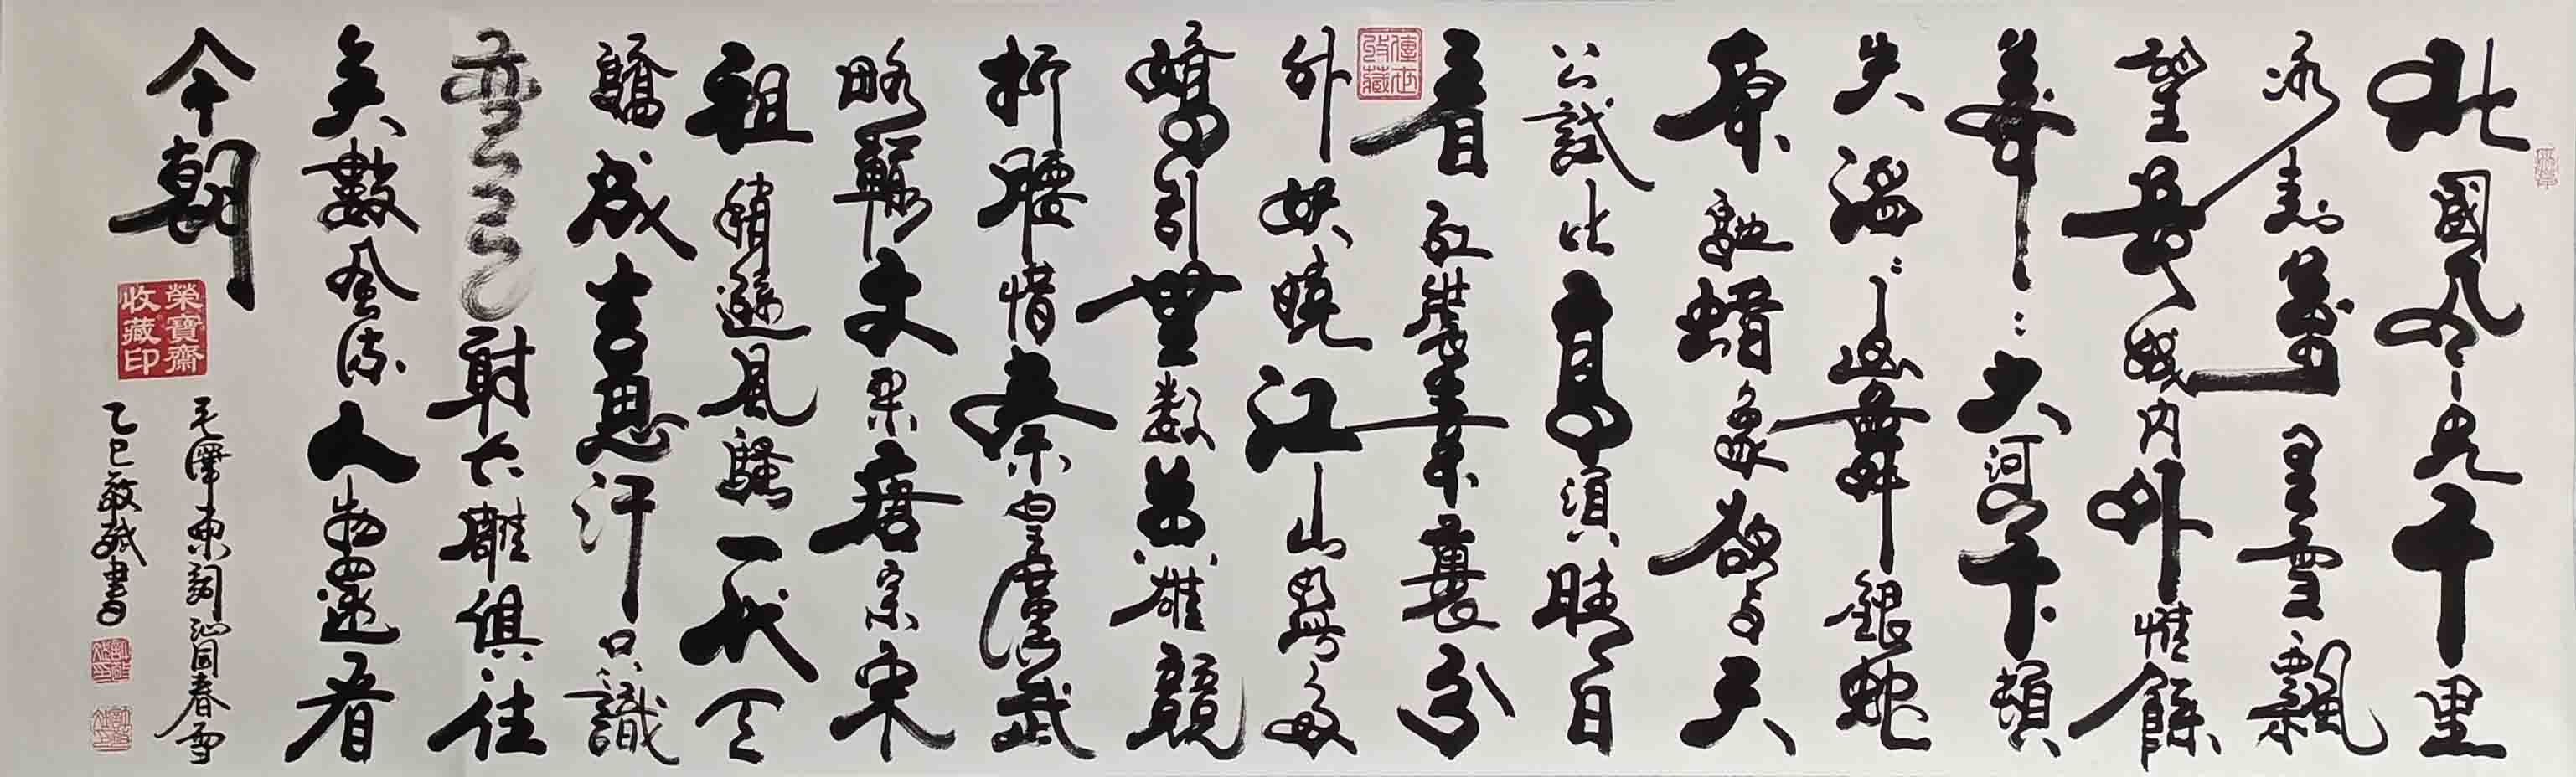 北國風光千里
冰封萬里雪飄
望長城内外惟餘
莽莽大河上下頓
失滔滔山舞銀蛇
原馳蜡象欲与天
公試比高須晴日
看紅裝素裹分
外妖嬈江山如此多
嬌引無数英雄競
折腰惜秦皇漢武
略輸文采唐宗宋
祖稍遜風騷一代天
驕成吉思汗只識
彎弓射大雕俱往
矣數風流人物還看
今朝
毛澤東詞沁園春雪
乙巳敬斌書
榮寶齋收藏印
傳世收藏